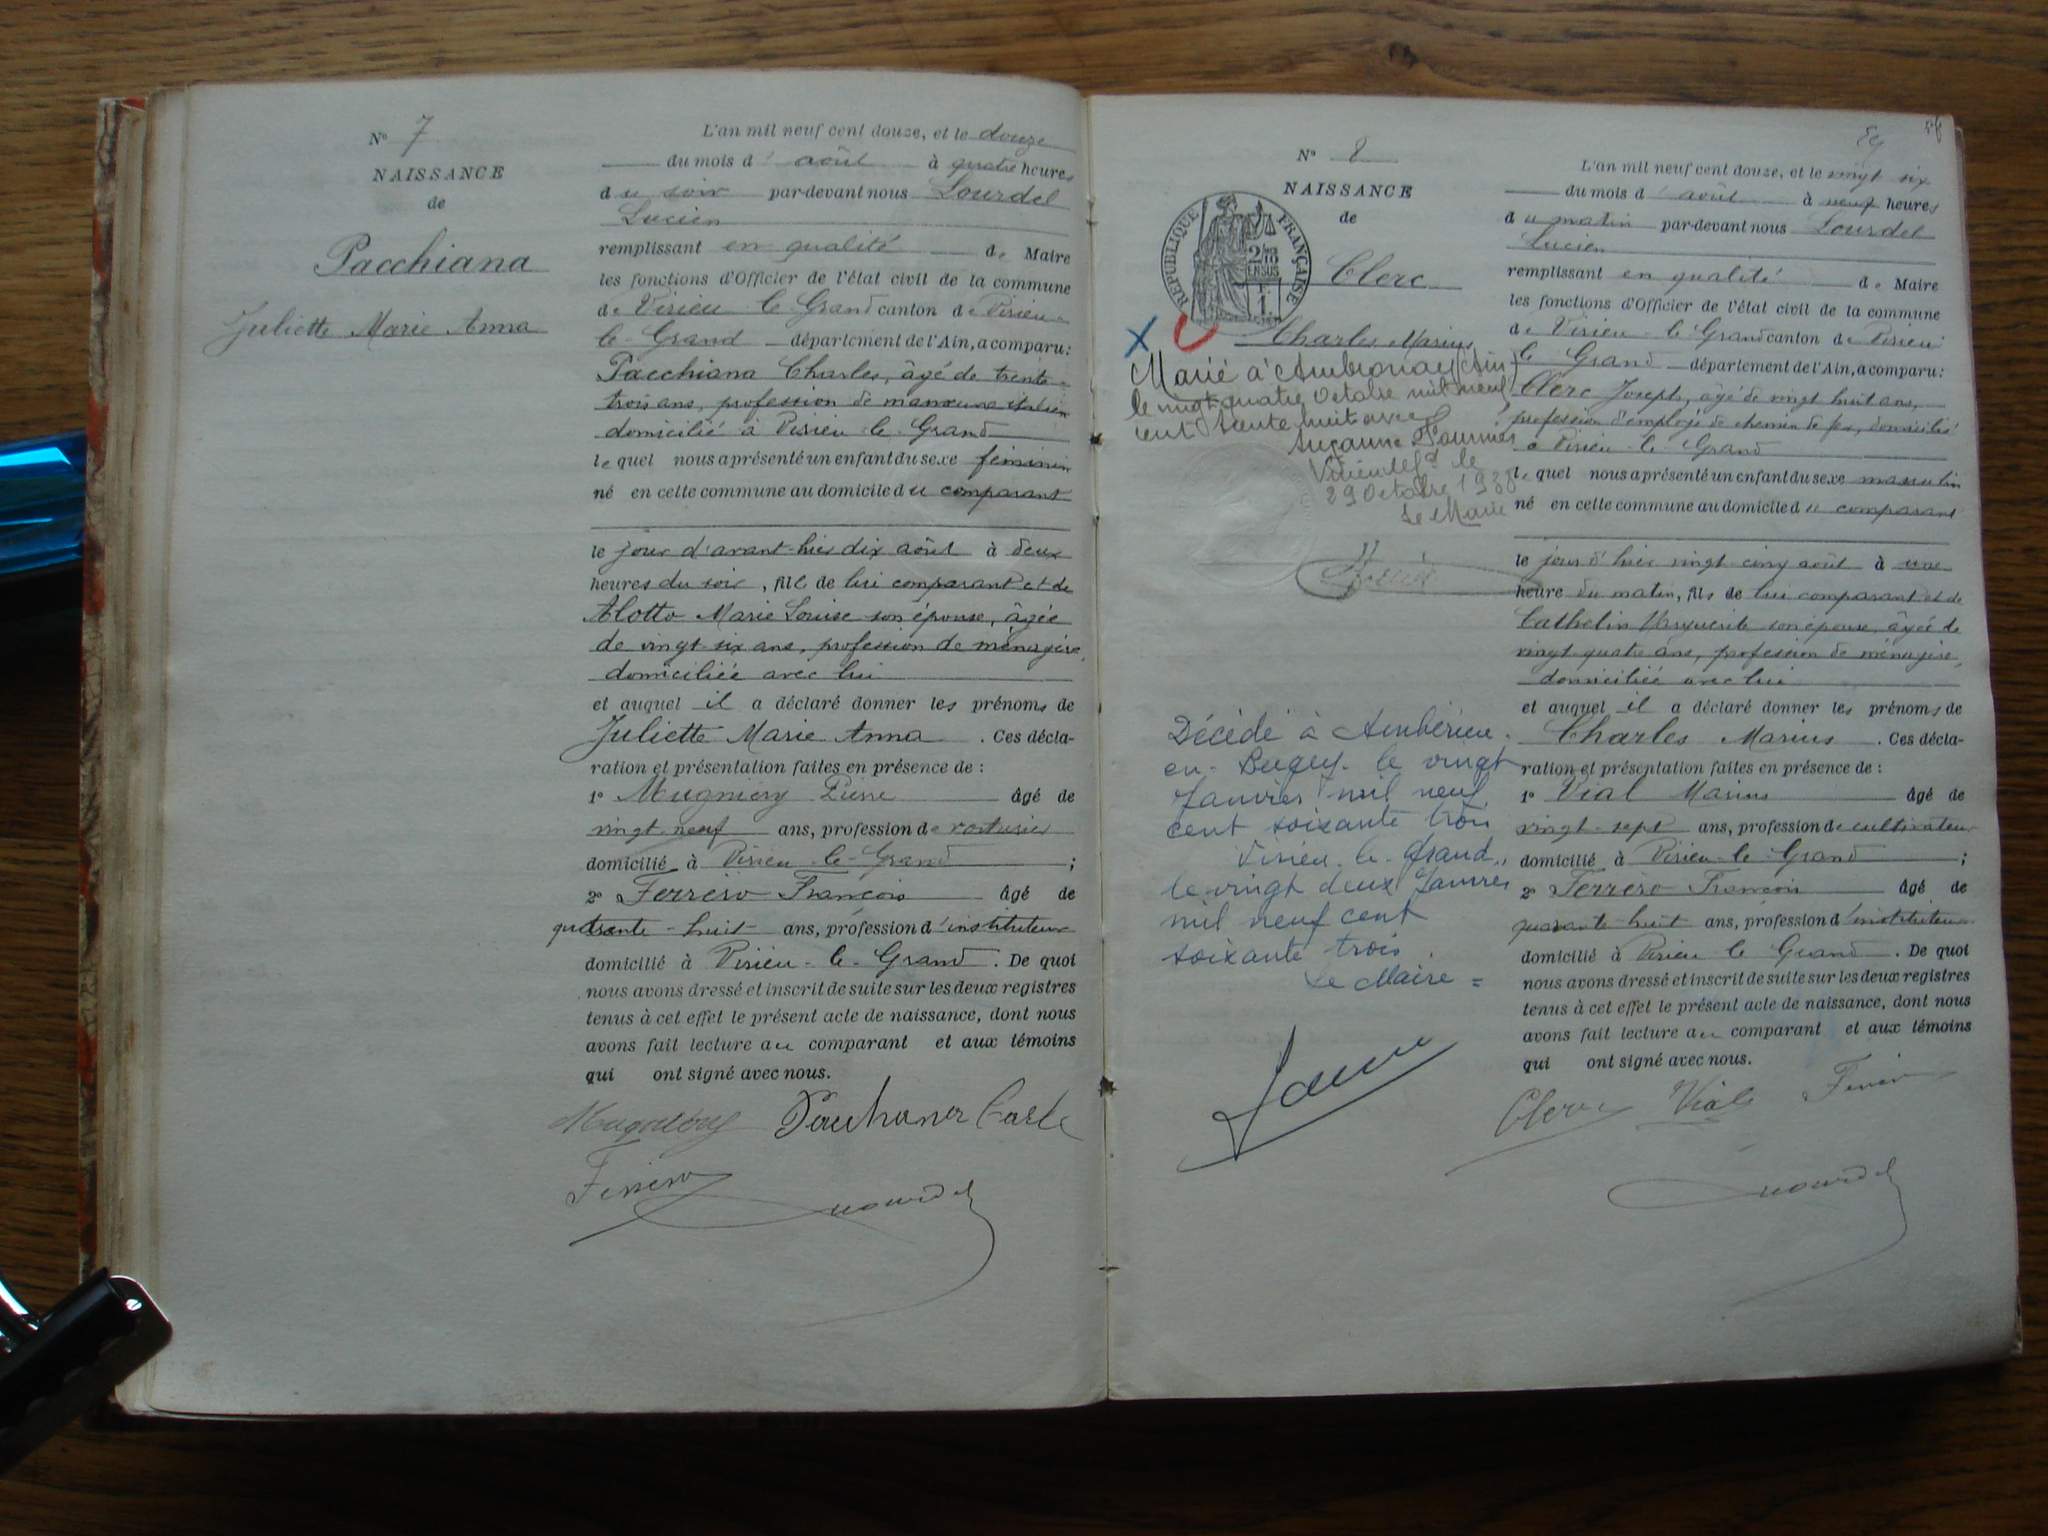 N° 7
NAISSANCE
de
Pacchiana
Juliette Marie Anna
L'an mil neuf cent douze, et le douze
du mois d'août à quatre heures
du soir par-devant nous Lourdel
Lucien
remplissant en qualité de Maire
les fonctions d'Officier de l'état civil de la commune
de Virieu-le-Grand canton de Virieu-
le-Grand département de l'Ain, a comparu:
Pacchiana Charles, âgé de trente-
trois ans, profession de manœuvre italien
domicilié à Virieu-le-Grand
lequel nous a présenté un enfant du sexe féminin
né en cette commune au domicile du comparant
le jour d'avant-hier dix août à deux
heures du soir, fille de lui comparant et de
Alotto Marie Louise son épouse, âgée
de vingt-six ans, profession de ménagère,
domiciliée avec lui
et auquel il a déclaré donner les prénoms de
Juliette Marie Anna. Ces décla-
ration et présentation faites en présence de :
1° Mugniery Pierre âgé de
vingt-neuf ans, profession de
domicilié à Virieu-le-Grand ;
2° Ferrero François âgé de
quarante-huit ans, profession d'instituteur
domicilié à Virieu-le-Grand. De quoi
nous avons dressé et inscrit de suite sur les deux registres
tenus à cet effet le présent acte de naissance, dont nous
avons fait lecture au comparant et aux témoins
qui ont signé avec nous.
Mugniery Pacchiana Carlo
Ferrero
Lourdel
N° 8
NAISSANCE
de
RÉPUBLIQUE FRANÇAISE
2/10 EN SUS
Clerc
Charles Marius
Marié à Ambronay (Ain)
le vingt quatre octobre mil neuf
cent trente huit avec
Suzanne Fournier
Virieu le Gd le
29 octobre 1938
Le Maire
Décédé à Ambérieu-
en-Bugey le vingt
Janvier mil neuf
cent soixante trois
Virieu-le-Grand,
le vingt deux Janvier
mil neuf cent
soixante trois
Le Maire =
L'an mil neuf cent douze, et le vingt six
du mois d'août à neuf heures
du matin par-devant nous Lourdel
Lucien
remplissant en qualité de Maire
les fonctions d'Officier de l'état civil de la commune
de Virieu-le-Grand canton de Virieu
le Grand département de l'Ain, a comparu:
Clerc Joseph, âgé de vingt huit ans,
profession d'employé de chemin de fer, domicilié
à Virieu-le-Grand
lequel nous a présenté un enfant du sexe masculin
né en cette commune au domicile du comparant
le jour d'hier vingt-cinq août à une
heure du matin, fils de lui comparant et de
Cathelin Marguerite son épouse, âgée de
vingt quatre ans, profession de ménagère,
domiciliée avec lui
et auquel il a déclaré donner les prénoms de
Charles Marius. Ces décla-
ration et présentation faites en présence de :
1° Vial Marius âgé de
vingt-sept ans, profession de cultivateur
domicilié à Virieu-le-Grand ;
2° Ferrero François âgé de
quarante-huit ans, profession d'instituteur
domicilié à Virieu le Grand. De quoi
nous avons dressé et inscrit de suite sur les deux registres
tenus à cet effet le présent acte de naissance, dont nous
avons fait lecture au comparant et aux témoins
qui ont signé avec nous.
Clerc Vial Ferrero
Lourdel